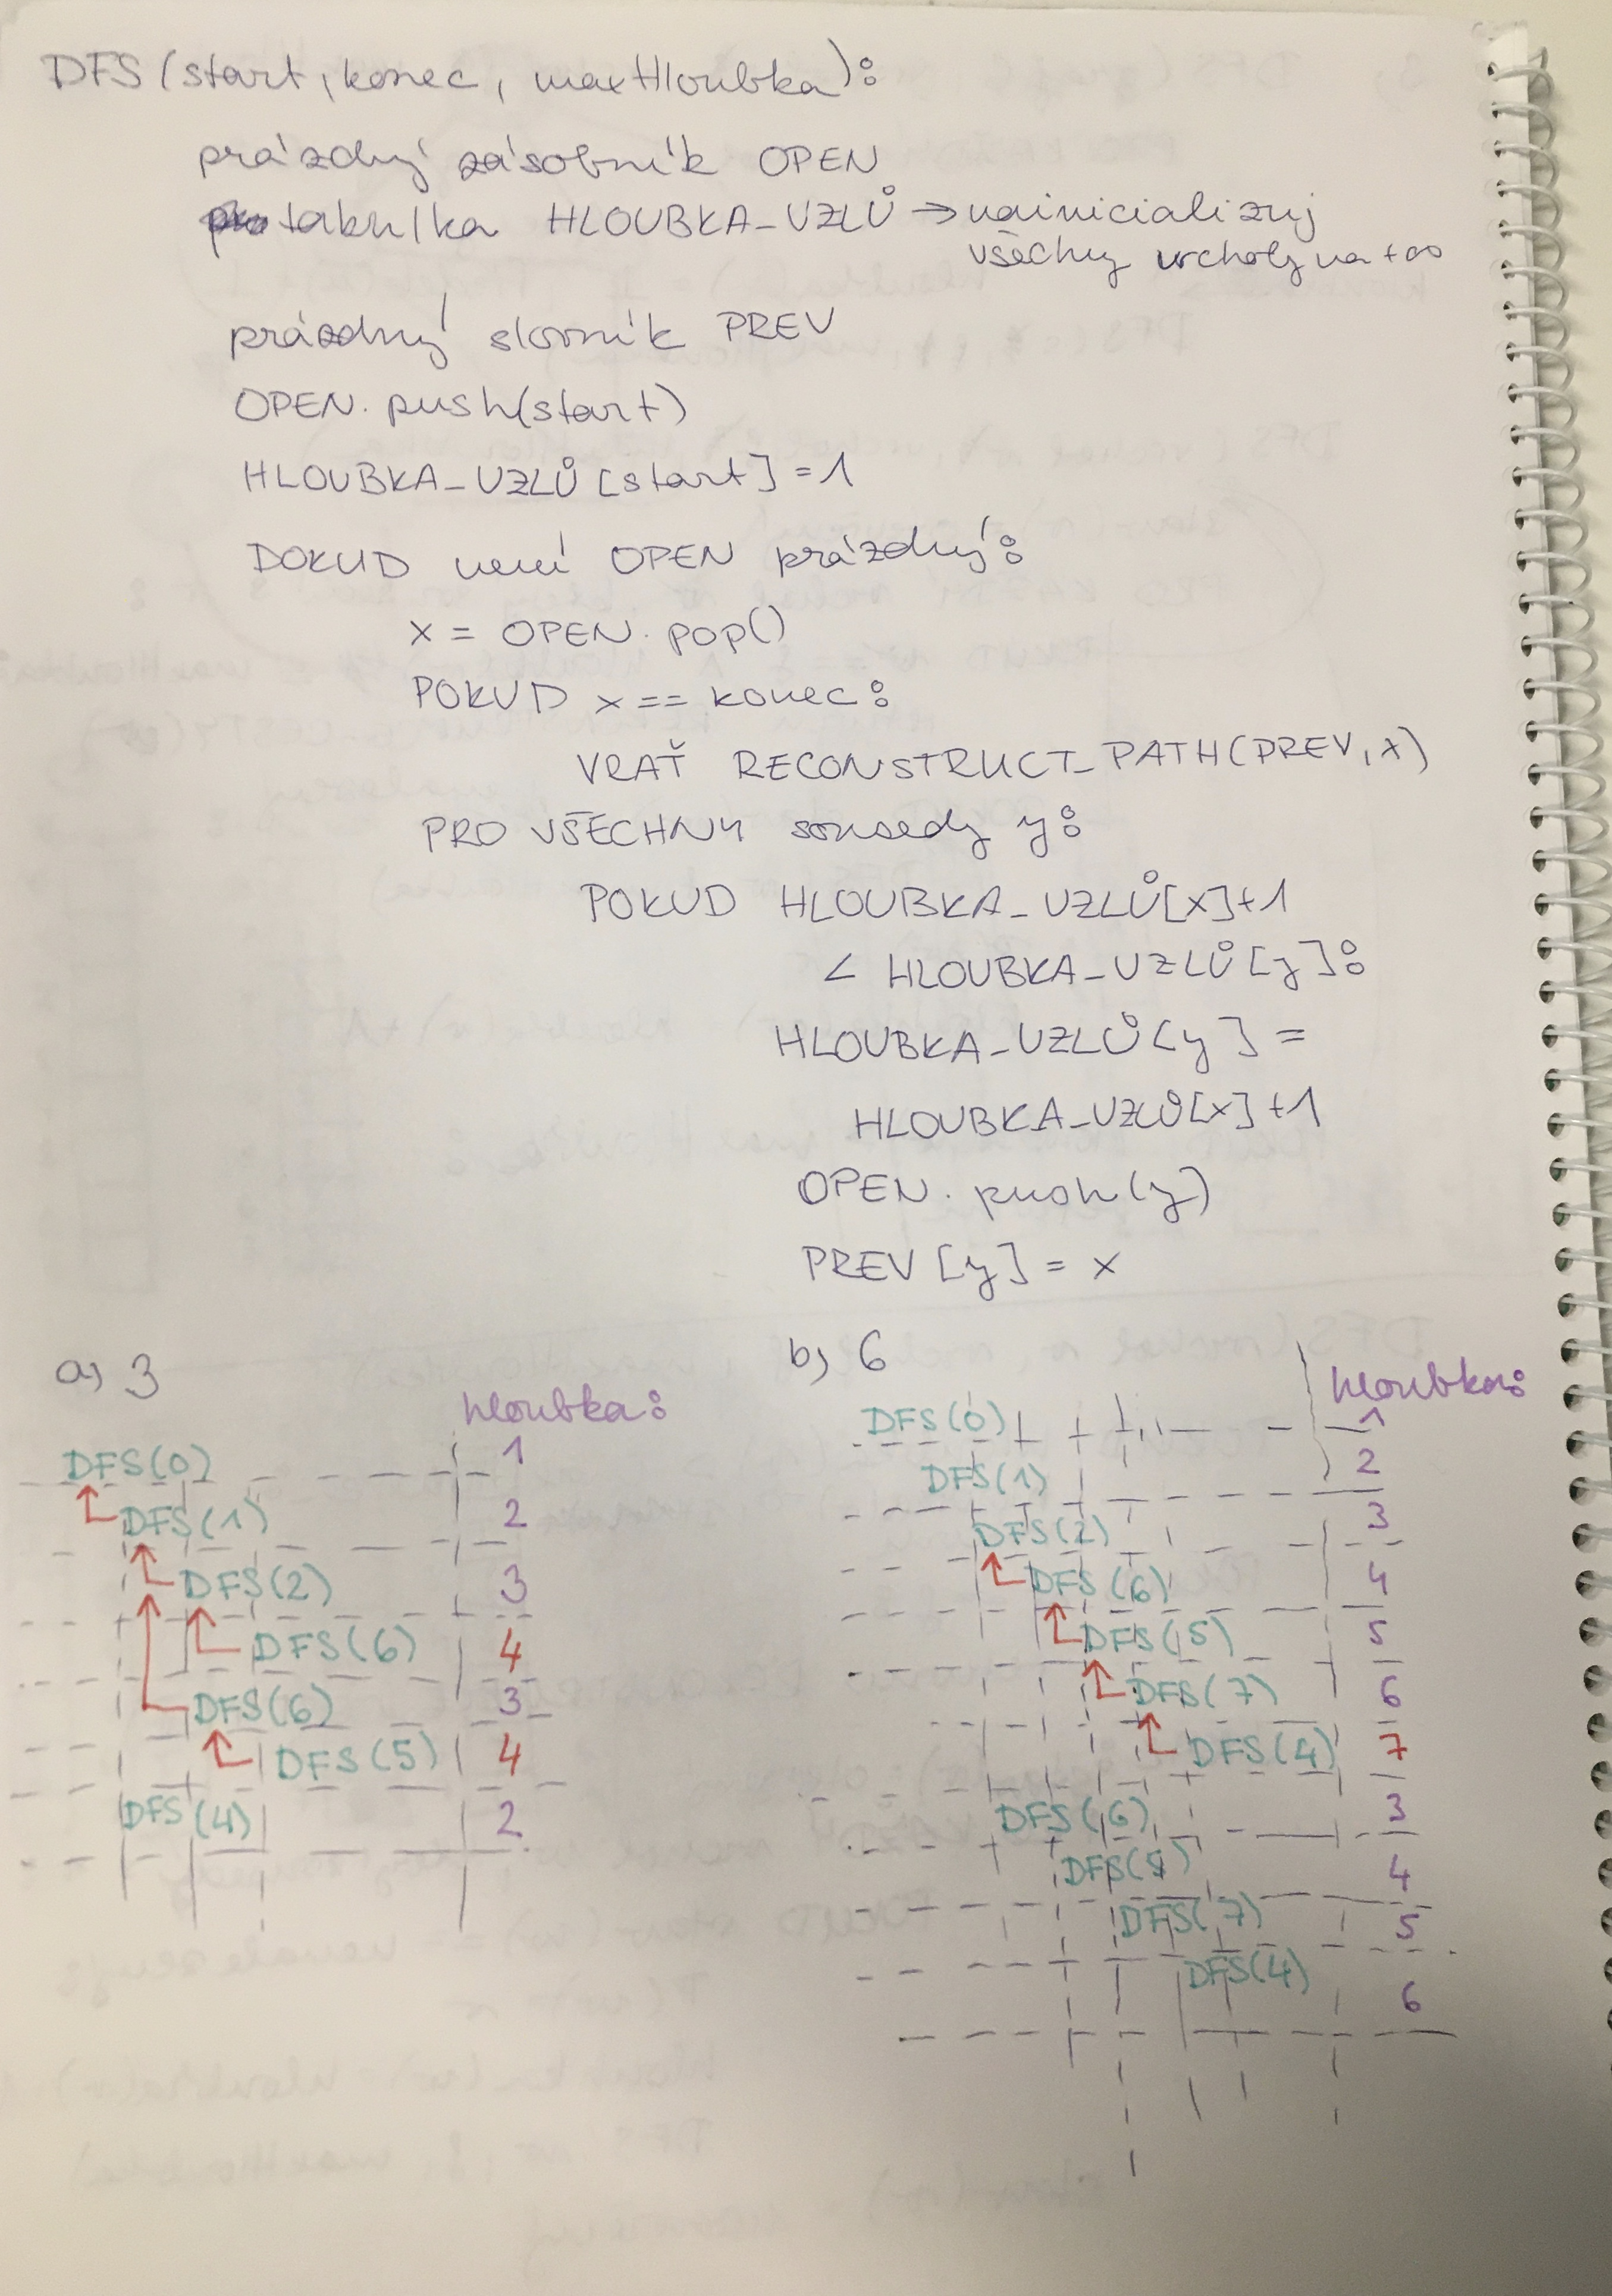 DFS (start, konec, maxHloubka):
prázdný zásobník OPEN
tabulka HLOUBKA_UZLŮ → nainicializuj
všechny vrcholy na +∞
prázdný slovník PREV
OPEN.push(start)
HLOUBKA_UZLŮ [start] = 1
DOKUD není OPEN prázdný:
x = OPEN.pop()
POKUD x == konec:
VRAŤ RECONSTRUCT_PATH(PREV, x)
PRO VŠECHNY sousedy y:
POKUD HLOUBKA_UZLŮ[x]+1
< HLOUBKA_UZLŮ[y]:
HLOUBKA_UZLŮ[y] =
HLOUBKA_UZLŮ[x]+1
OPEN.push(y)
PREV[y] = x
a) 3
hloubka:
DFS(0) 1
DFS(1) 2
DFS(2) 3
DFS(6) 4
DFS(6) 3
DFS(5) 4
DFS(4) 2
b) 6
hloubka:
DFS(0) 1
DFS(1) 2
DFS(2) 3
DFS(6) 4
DFS(5) 5
DFS(7) 6
DFS(4) 7
DFS(6) 3
DFS(5) 4
DFS(7) 5
DFS(4) 6